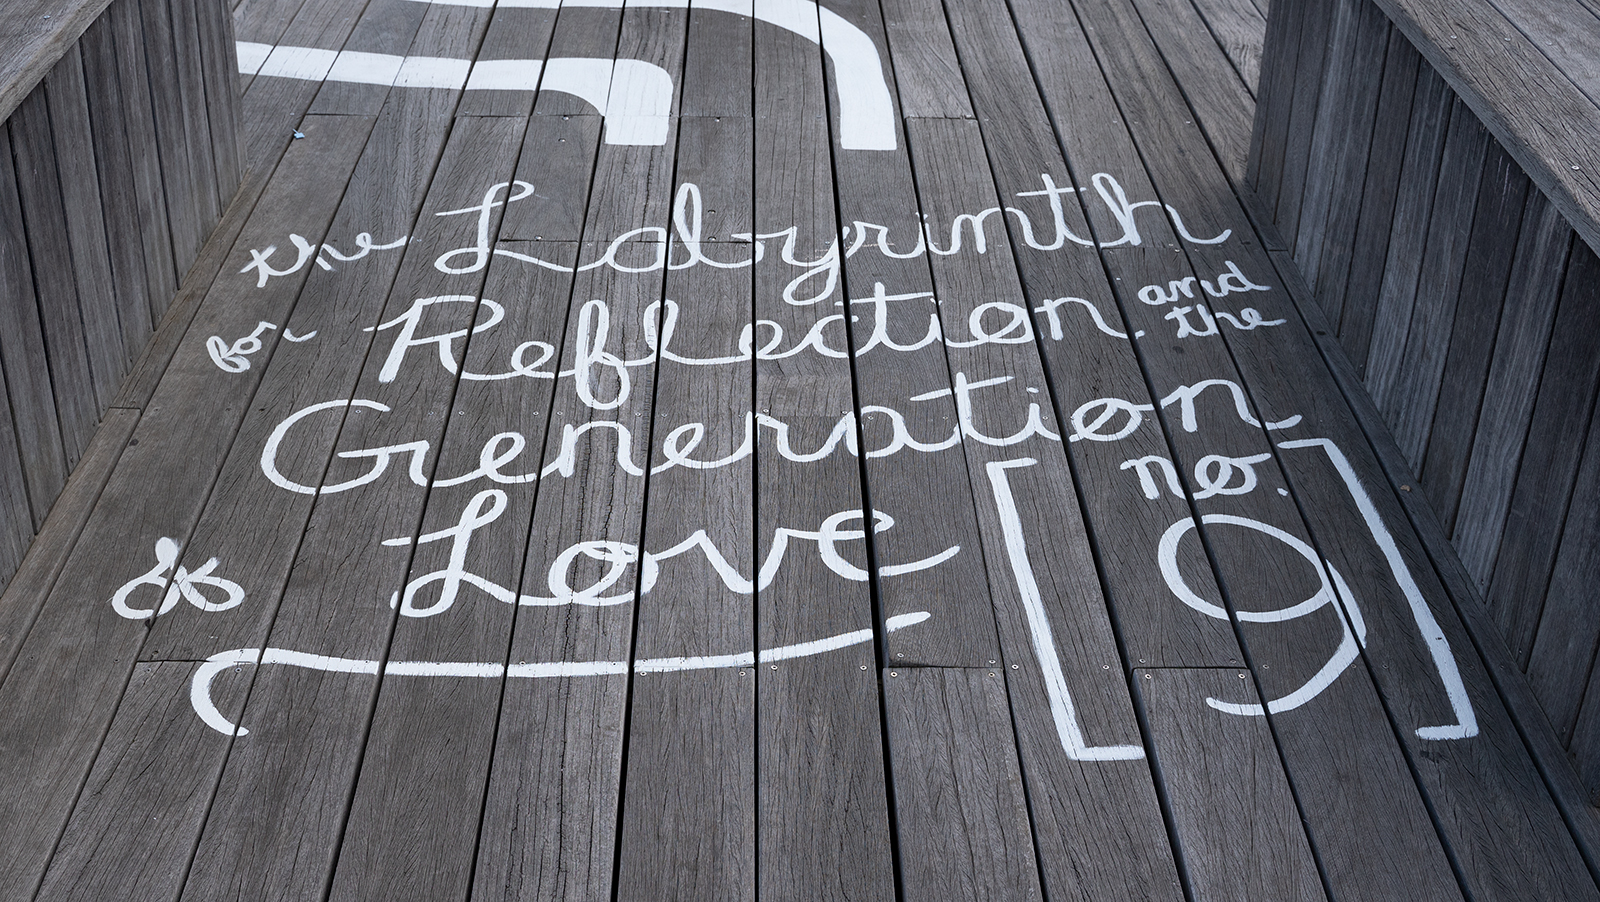 the Labyrinth
for Reflection and the
Generation
of Love [no. 9]